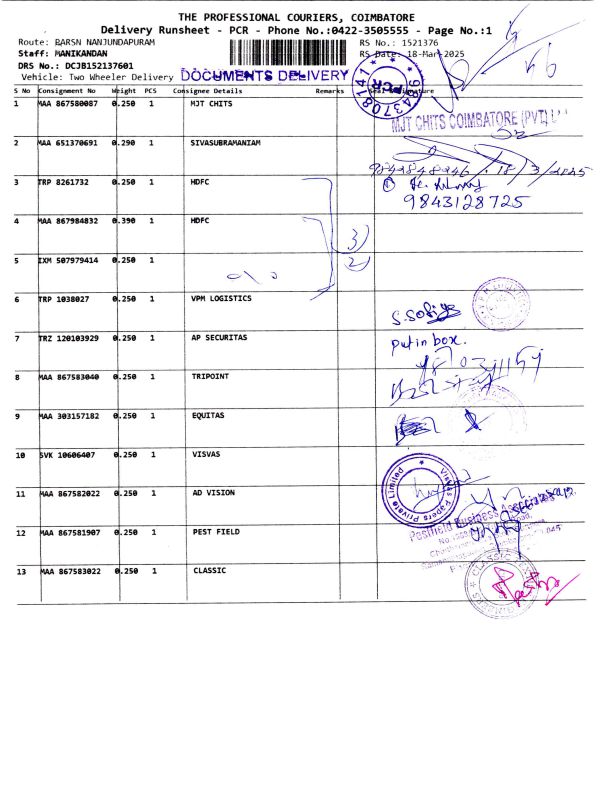 THE PROFESSIONAL COURIERS, COIMBATORE
Delivery Runsheet - PCR - Phone No.:0422-3505555 - Page No.:1
Route: BARSN NANJUNDAPURAM
RS No.: 1521376
Staff: MANIKANDAN
RS Date: 18-Mar-2025
DRS No.: DCJB152137601
Vehicle: Two Wheeler Delivery DOCUMENTS DELIVERY
PCR
S No Consignment No Weight PCS Consignee Details Remarks
1 MAA 867580087 0.250 1 MJT CHITS
MJT CHITS COIMBATORE (PVT)
2 MAA 651370691 0.290 1 SIVASUBRAMANIAM
9842848246 18/3/2025
3 TRP 8261732 0.250 1 HDFC
9843128725
4 MAA 867984832 0.390 1 HDFC
3)
5 IXM 507979414 0.250 1
2)
6 TRP 1038027 0.250 1 VPM LOGISTICS
7 TRZ 120103929 0.250 1 AP SECURITAS
put in box.
8 MAA 867583040 0.250 1 TRIPOINT
9 MAA 303157182 0.250 1 EQUITAS
10 SVK 10606407 0.250 1 VISVAS
Visvas Papers Private Limited
11 MAA 867582022 0.250 1 AD VISION
12 MAA 867581907 0.250 1 PEST FIELD
Business
13 MAA 867583022 0.250 1 CLASSIC
CLASSIC